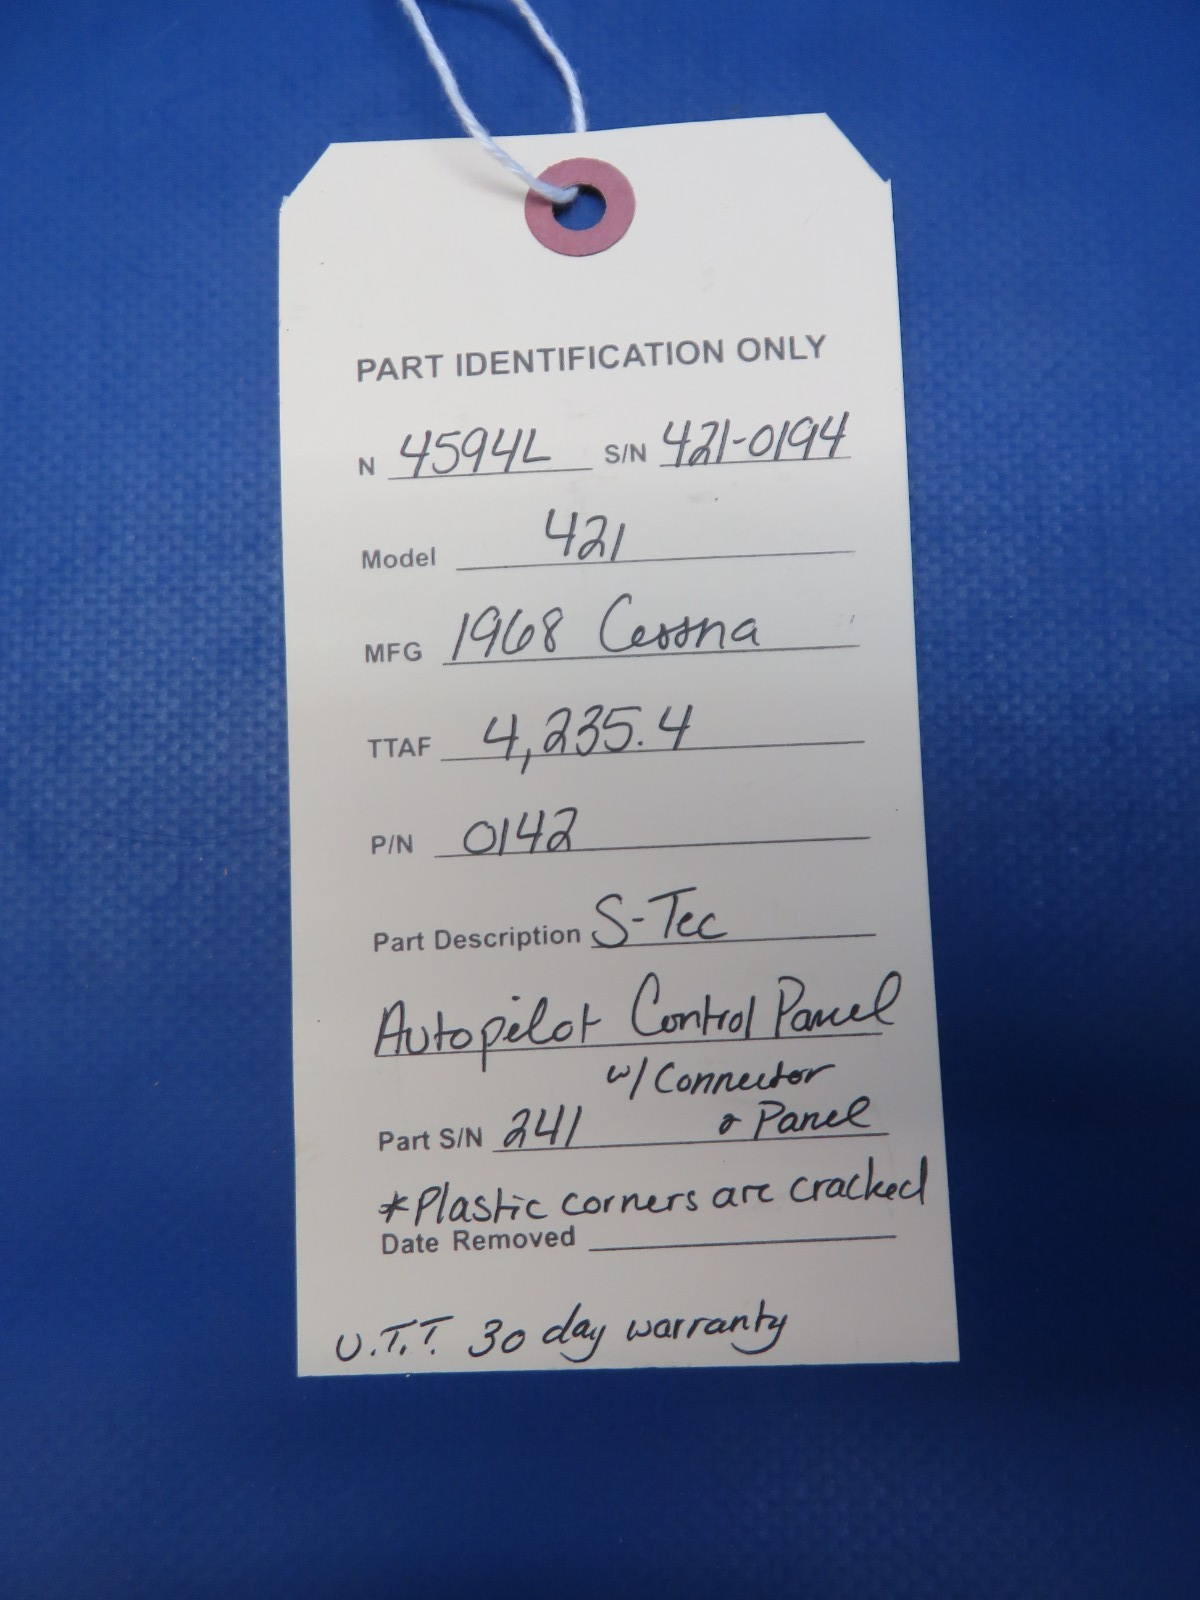 PART IDENTIFICATION ONLY
N 4594L S/N 421-0194
Model 421
MFG 1968 Cessna
TTAF 4,235.4
P/N 0142
Part Description S-Tec
Autopilot Control Panel
w/ Connector
Part S/N 241 & Panel
*Plastic corners are cracked
Date Removed
U.T.T. 30 day warranty